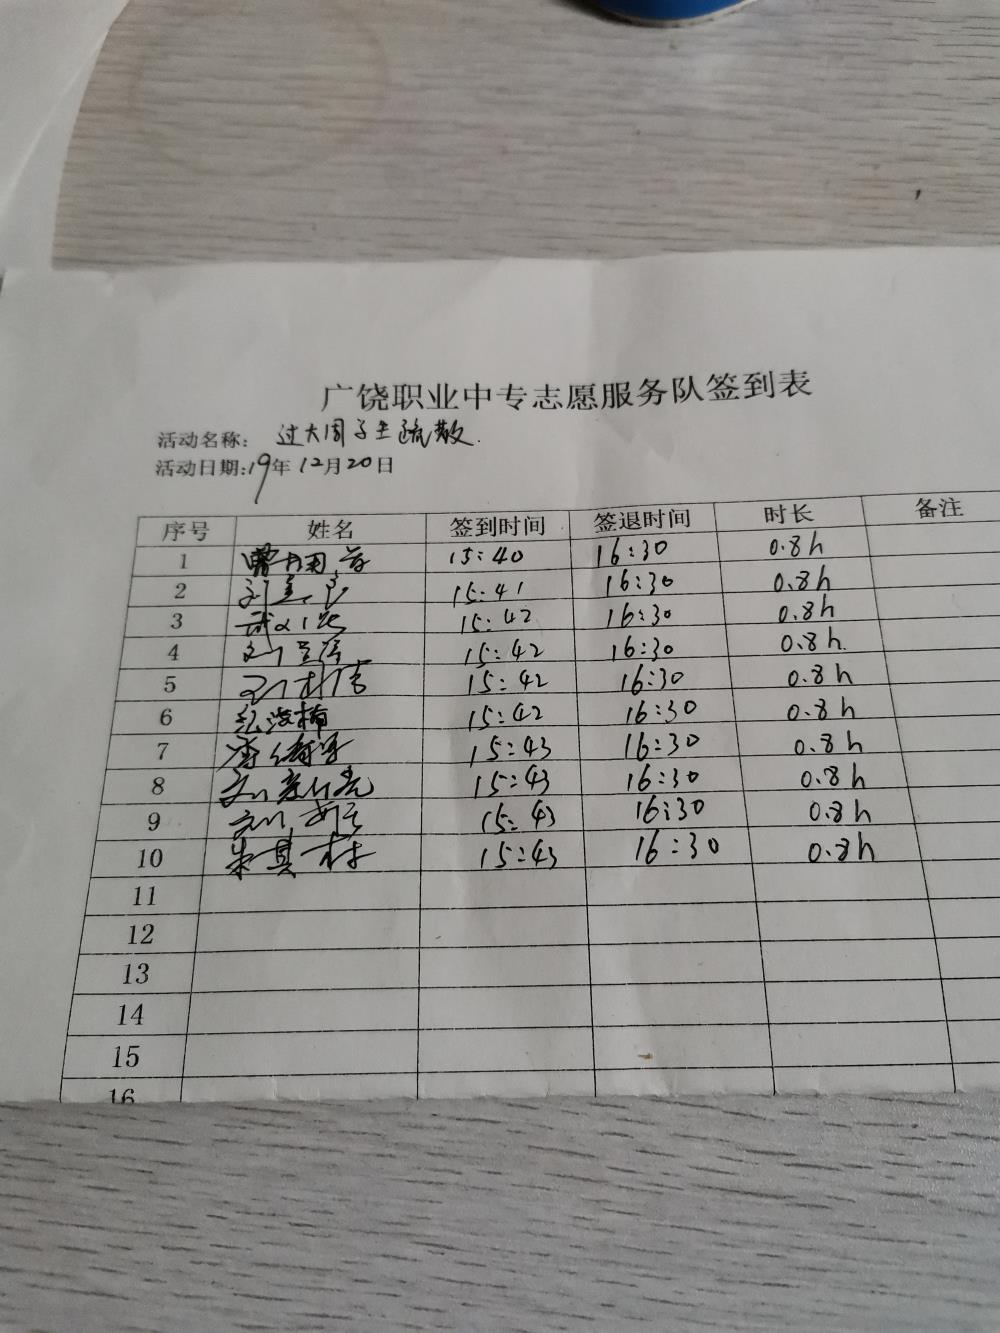 广饶职业中专志愿服务队签到表
活动名称: 过大周学生疏散.
活动日期:19年12月20日
序号 姓名 签到时间 签退时间 时长 备注
1 15:40 16:30 0.8h
2 15:41 16:30 0.8h
3 15:42 16:30 0.8h
4 15:42 16:30 0.8h.
5 15:42 16:30 0.8h
6 15:42 16:30 0.8h
7 15:43 16:30 0.8h
8 15:43 16:30 0.8h
9 15:43 16:30 0.8h
10 15:43 16:30 0.8h
11
12
13
14
15
16